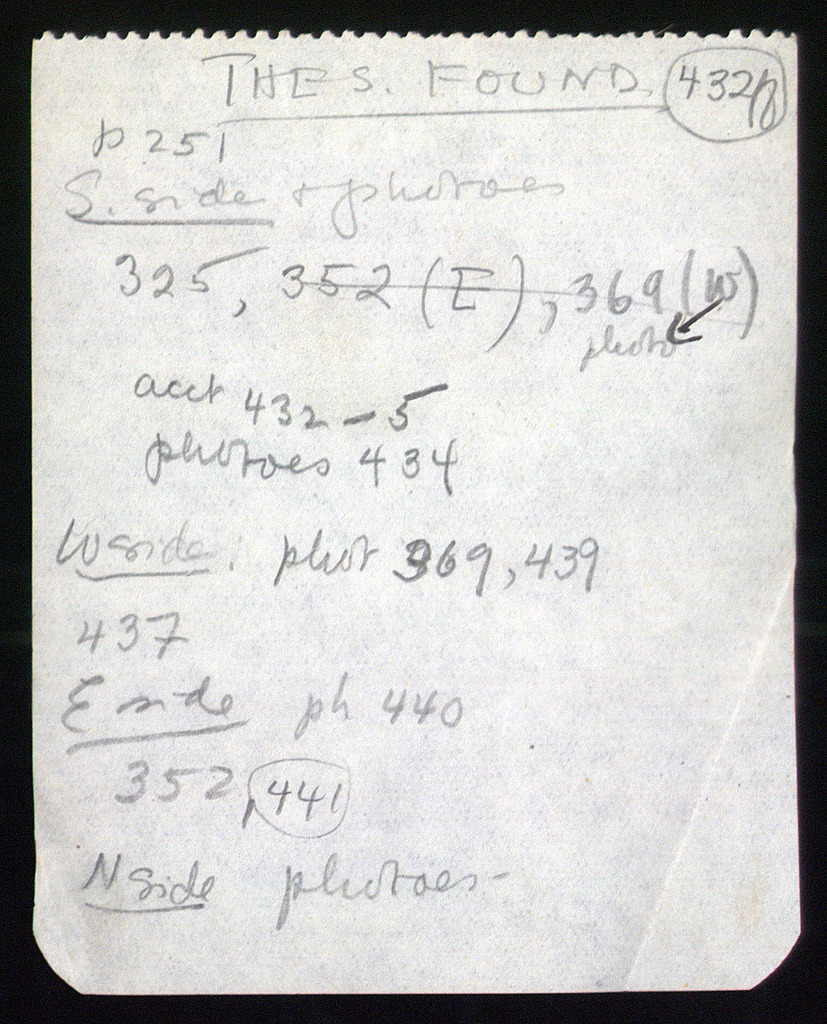 THE S. FOUND. 432ff
p 251
S. side + photoes
325, 352 (E), 369 (W)
photo
acct 432-5
photoes 434
W side. phot 369, 439
437
E side ph 440
352, 441
N side photoes-